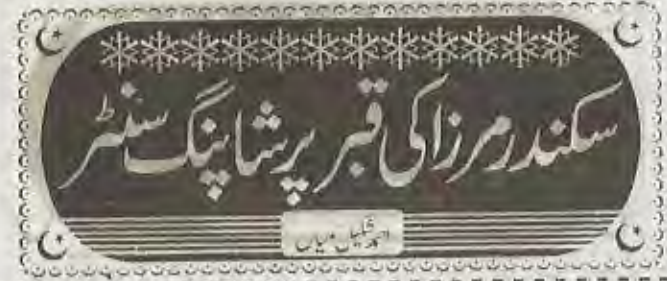 سکندر مرزا کی قبر پر شاپنگ سنٹر
احمد خلیل میاں